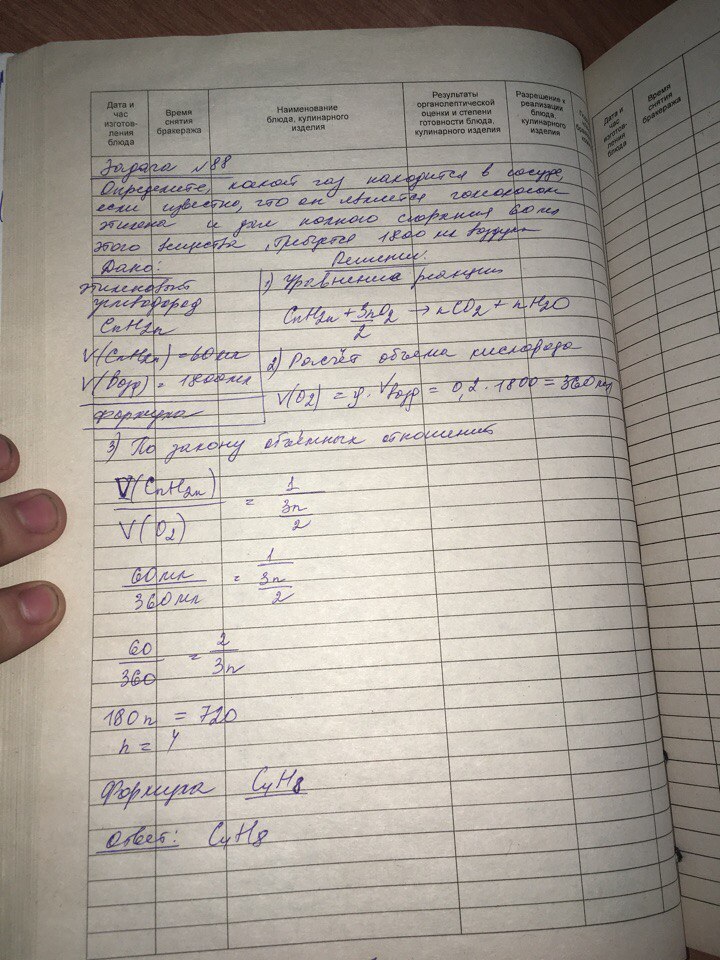 Дата и час изготов- ления блюда
Время снятия бракеража
Наименование блюда, кулинарного изделия
Результаты органолептической оценки и степени готовности блюда, кулинарного изделия
Разрешение к реализации блюда, кулинарного изделия
Дата и час изготов- ления блюда
Время снятия бракеража
Задача №88
Определите, какой газ находится в сосуде,
если известно, что он является гомологом
этилена и для полного сгорания 60 мл
этого вещества, требуется 1800 мл воздуха
Дано:
Решение.
этиленовый
углеводород
CnH2n
V(CnH2n) = 60мл
V(возд) = 1800мл
формула
1) Уравнение реакции
CnH2n + 3n/2 O2 → nCO2 + nH2O
2) Расчёт объема кислорода
V(O2) = φ · Vвозд = 0,2 · 1800 = 360 мл
3) По закону объемных отношений
V(CnH2n) / V(O2) = 1 / (3n/2)
60мл / 360мл = 1 / (3n/2)
60/360 = 2/3n
180n = 720
n = 4
Формула C4H8
Ответ: C4H8